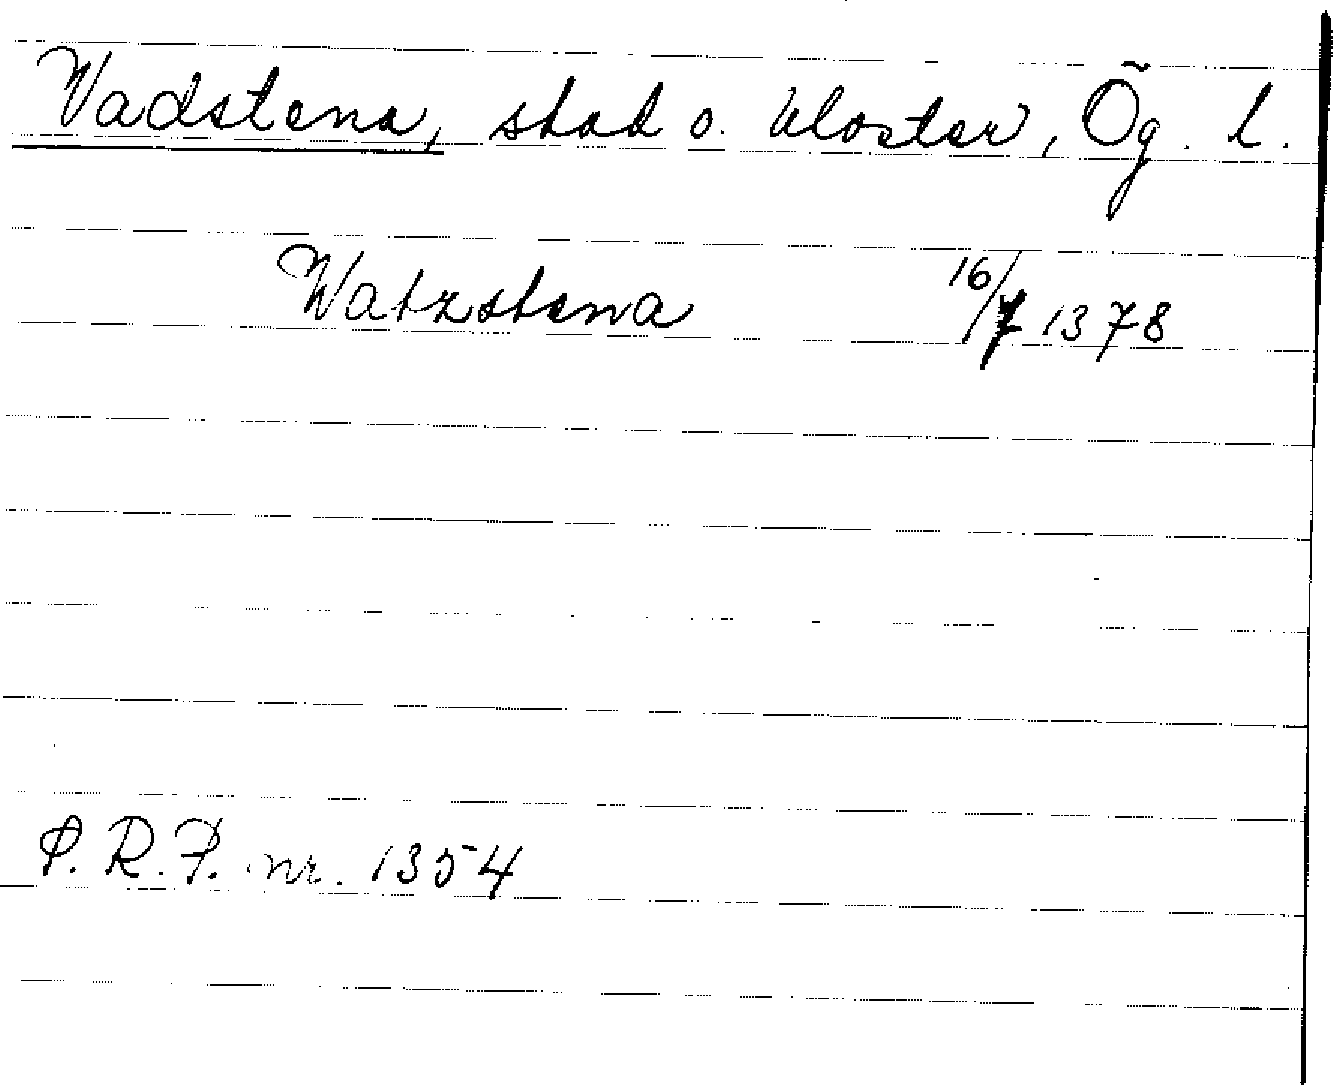 Vadstena, stad o. kloster, Ög. l.
Watzstena 16/7 1378
P. R. P. nr. 1354